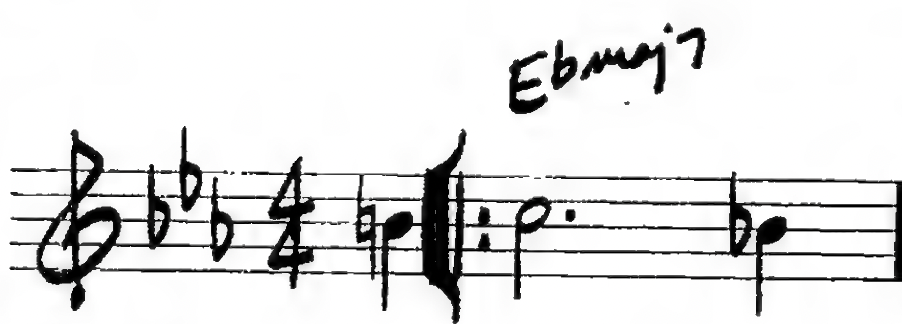 Ebmaj7
4
4